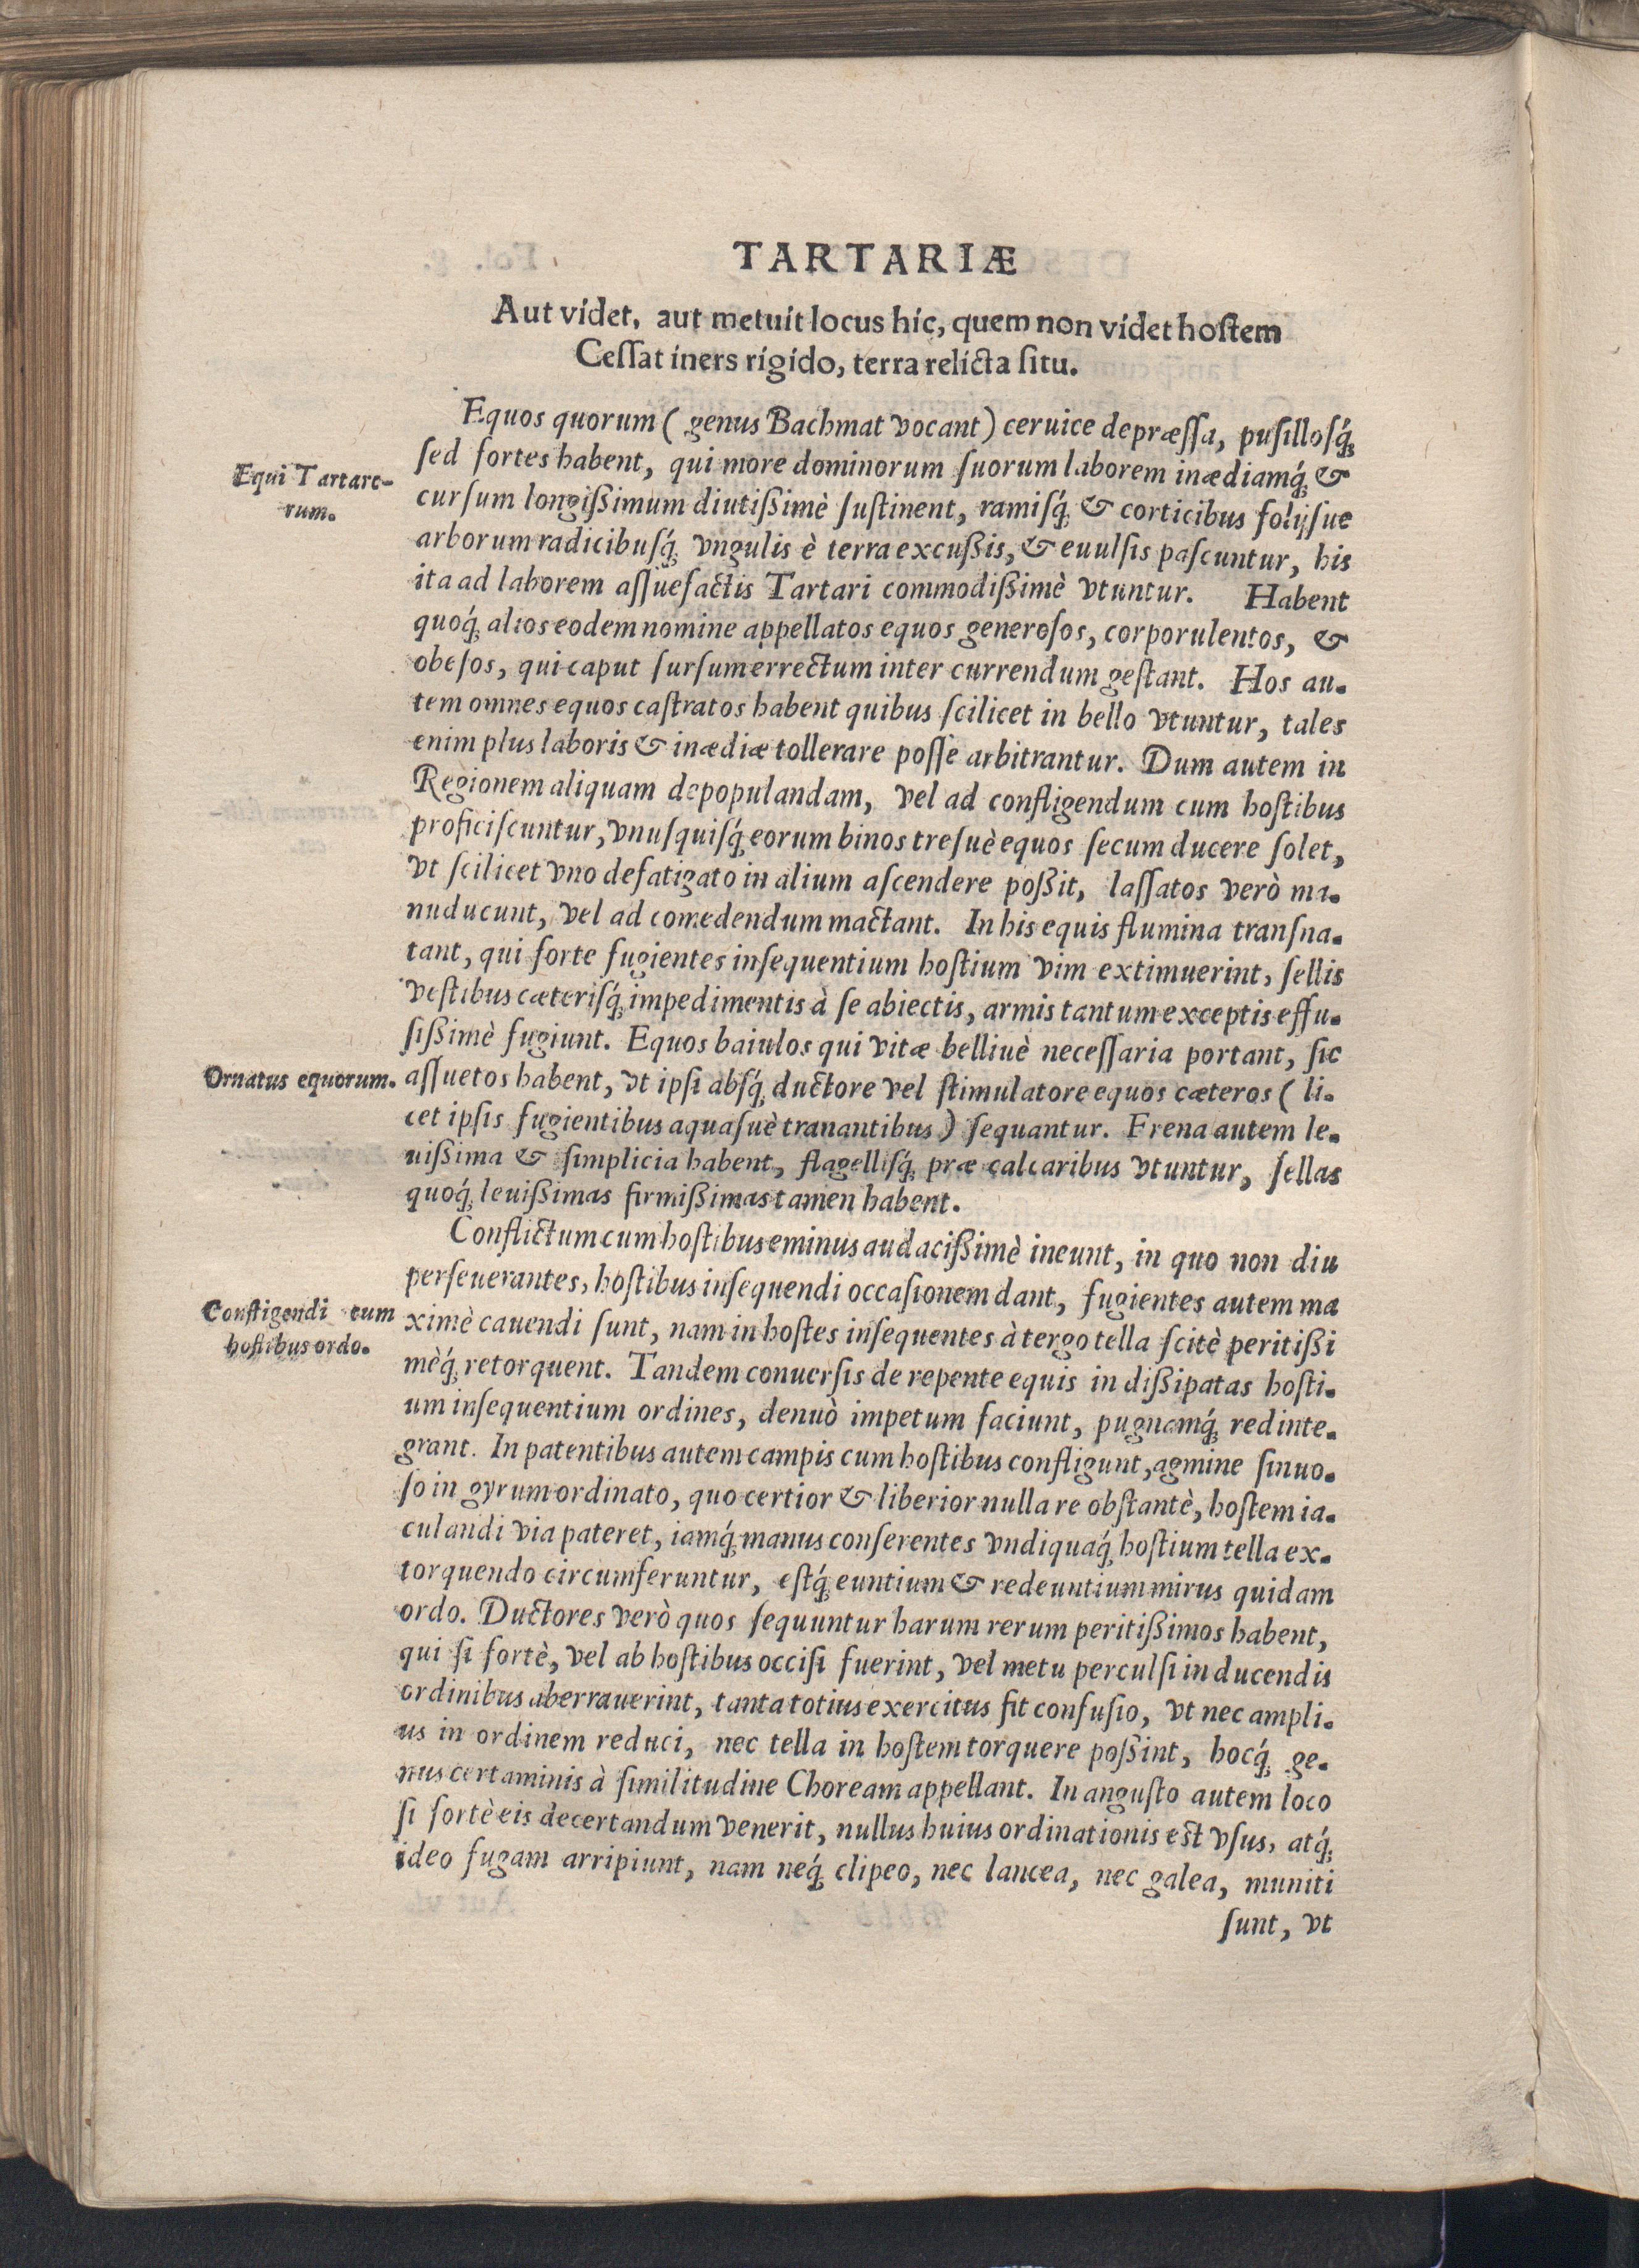 TARTARIÆ
Aut videt, aut metuit locus hic, quem non videt hoſtem
Ceſſat iners rigido, terra relicta ſitu.
Equos quorum ( genus Bachmat vocant ) ceruice depræſſa, puſilloſq́;
Equi Tartaro-
rum.
ſed fortes habent, qui more dominorum ſuorum laborem inædiamq́; &
curſum longißimum diutißimè ſuſtinent, ramiſq́; & corticibus folijſue
arborum radicibuſq́; vngulis è terra excußis, & euulſis paſcuntur, his
ita ad laborem aſſuefactis Tartari commodißimè vtuntur. Habent
quoq́; alios eodem nomine appellatos equos generoſos, corporulentos, &
obeſos, qui caput ſurſum errectum inter currendum geſtant. Hos au-
tem omnes equos caſtratos habent quibus ſcilicet in bello vtuntur, tales
enim plus laboris & inædiæ tollerare poſſe arbitrantur. Dum autem in
Regionem aliquam depopulandam, vel ad confligendum cum hoſtibus
proficiſcuntur, vnuſquiſq́; eorum binos treſuè equos ſecum ducere ſolet,
vt ſcilicet vno defatigato in alium aſcendere poßit, laſſatos verò ma-
nuducunt, vel ad comedendum mactant. In his equis flumina tranſna-
tant, qui forte fugientes inſequentium hoſtium vim extimuerint, ſellis
veſtibus cæteriſq́; impedimentis à ſe abiectis, armis tantum exceptis effu-
ſißimè fugiunt. Equos baiulos qui vitæ belliuè neceſſaria portant, ſic
Ornatus equorum.
aſſuetos habent, vt ipſi abſq́; ductore vel ſtimulatore equos cæteros ( li-
cet ipſis fugientibus aquaſuè tranantibus ) ſequantur. Frena autem le-
uißima & ſimplicia habent, flagelliſq́; præ calcaribus vtuntur, ſellas
quoq́; leuißimas firmißimas tamen habent.
Conflictum cum hoſtibus eminus audacißimè ineunt, in quo non diu
perſeuerantes, hoſtibus inſequendi occaſionem dant, fugientes autem ma
Confligendi cum
hoſtibus ordo.
ximè cauendi ſunt, nam in hoſtes inſequentes à tergo tella ſcitè peritißi
mèq́; retorquent. Tandem conuerſis de repente equis in dißipatas hoſti-
um inſequentium ordines, denuò impetum faciunt, pugnamq́; redinte-
grant. In patentibus autem campis cum hoſtibus confligunt, agmine ſinuo-
ſo in gyrum ordinato, quo certior & liberior nulla re obſtantè, hoſtem ia-
culandi via pateret, iamq́; manus conſerentes vndiquaq́; hoſtium tella ex-
torquendo circumferuntur, eſtq́; euntium & redeuntium mirus quidam
ordo. Ductores verò quos ſequuntur harum rerum peritißimos habent,
qui ſi fortè, vel ab hoſtibus occiſi fuerint, vel metu perculſi in ducendis
ordinibus aberrauerint, tanta totius exercitus fit confuſio, vt nec ampli-
us in ordinem reduci, nec tella in hoſtem torquere poßint, hocq́; ge-
nus certaminis à ſimilitudine Choream appellant. In anguſto autem loco
ſi fortè eis decertandum venerit, nullus huius ordinationis eſt vſus, atq́;
ideo fugam arripiunt, nam neq́; clipeo, nec lancea, nec galea, muniti
ſunt, vt